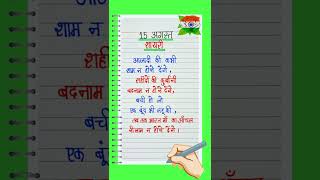 15 अगस्त
शायरी
आजादी की कभी
शाम न होने देंगे,
शहीदों की कुर्बानी
बदनाम न होने देंगे,
बची हो जो
एक बूंद भी लहू की,
तब तक भारत माँ का आँचल
नीलाम न होने देंगे।